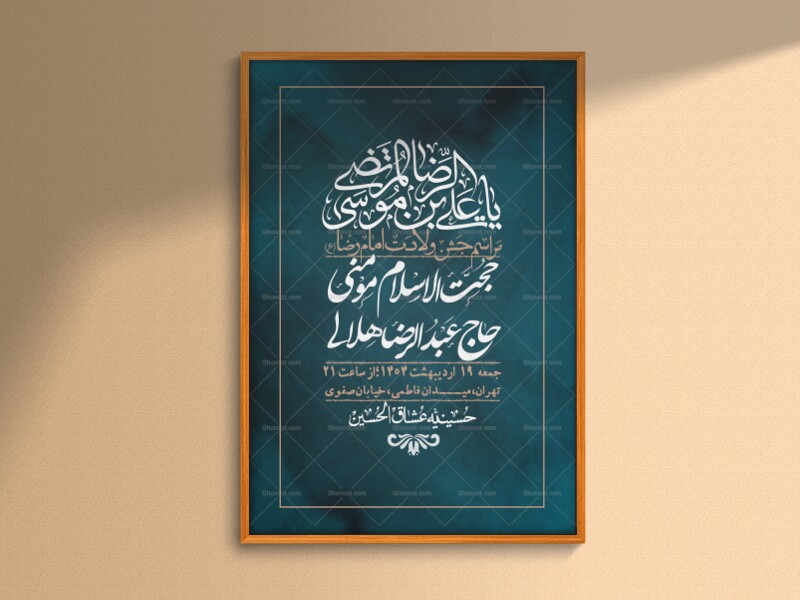 یا علی بن موسی الرضا المرتضی
مراسم جشن ولادت امام رضا (ع)
حجت الاسلام مومنی
حاج عبدالرضا هلالی
جمعه ۱۹ اردیبهشت ۱۴۰۴؛از ساعت ۲۱
تهران، میدان فاطمی، خیابان صفوی
حسینیه عشاق الحسین
Ghonoot.com